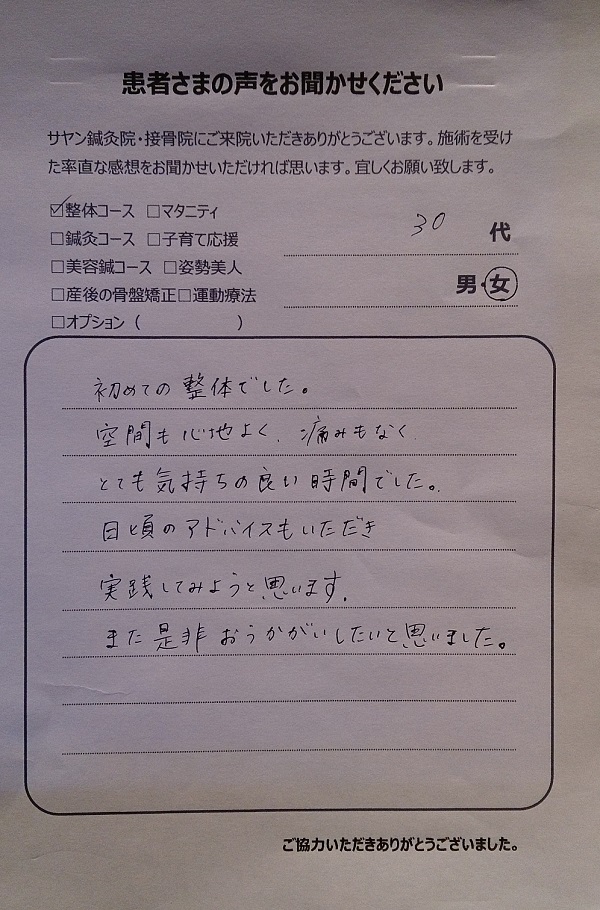 患者さまの声をお聞かせください
サヤン鍼灸院・接骨院にご来院いただきありがとうございます。施術を受け
た率直な感想をお聞かせいただければ思います。宜しくお願い致します。
☑整体コース □マタニティ
□鍼灸コース □子育て応援
□美容鍼コース □姿勢美人
□産後の骨盤矯正□運動療法
□オプション（ ）
30 代
男・女
初めての整体でした。
空間も心地よく、痛みもなく
とても気持ちの良い時間でした。
日頃のアドバイスもいただき
実践してみようと思います。
また是非おうかがいしたいと思いました。
ご協力いただきありがとうございました。